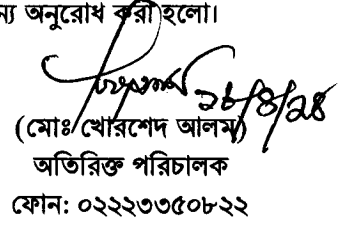 ন্য অনুরোধ করা হলো।
(মোঃ খোরশেদ আলম)
অতিরিক্ত পরিচালক
ফোন: ০২২২৩৩৫০৮২২